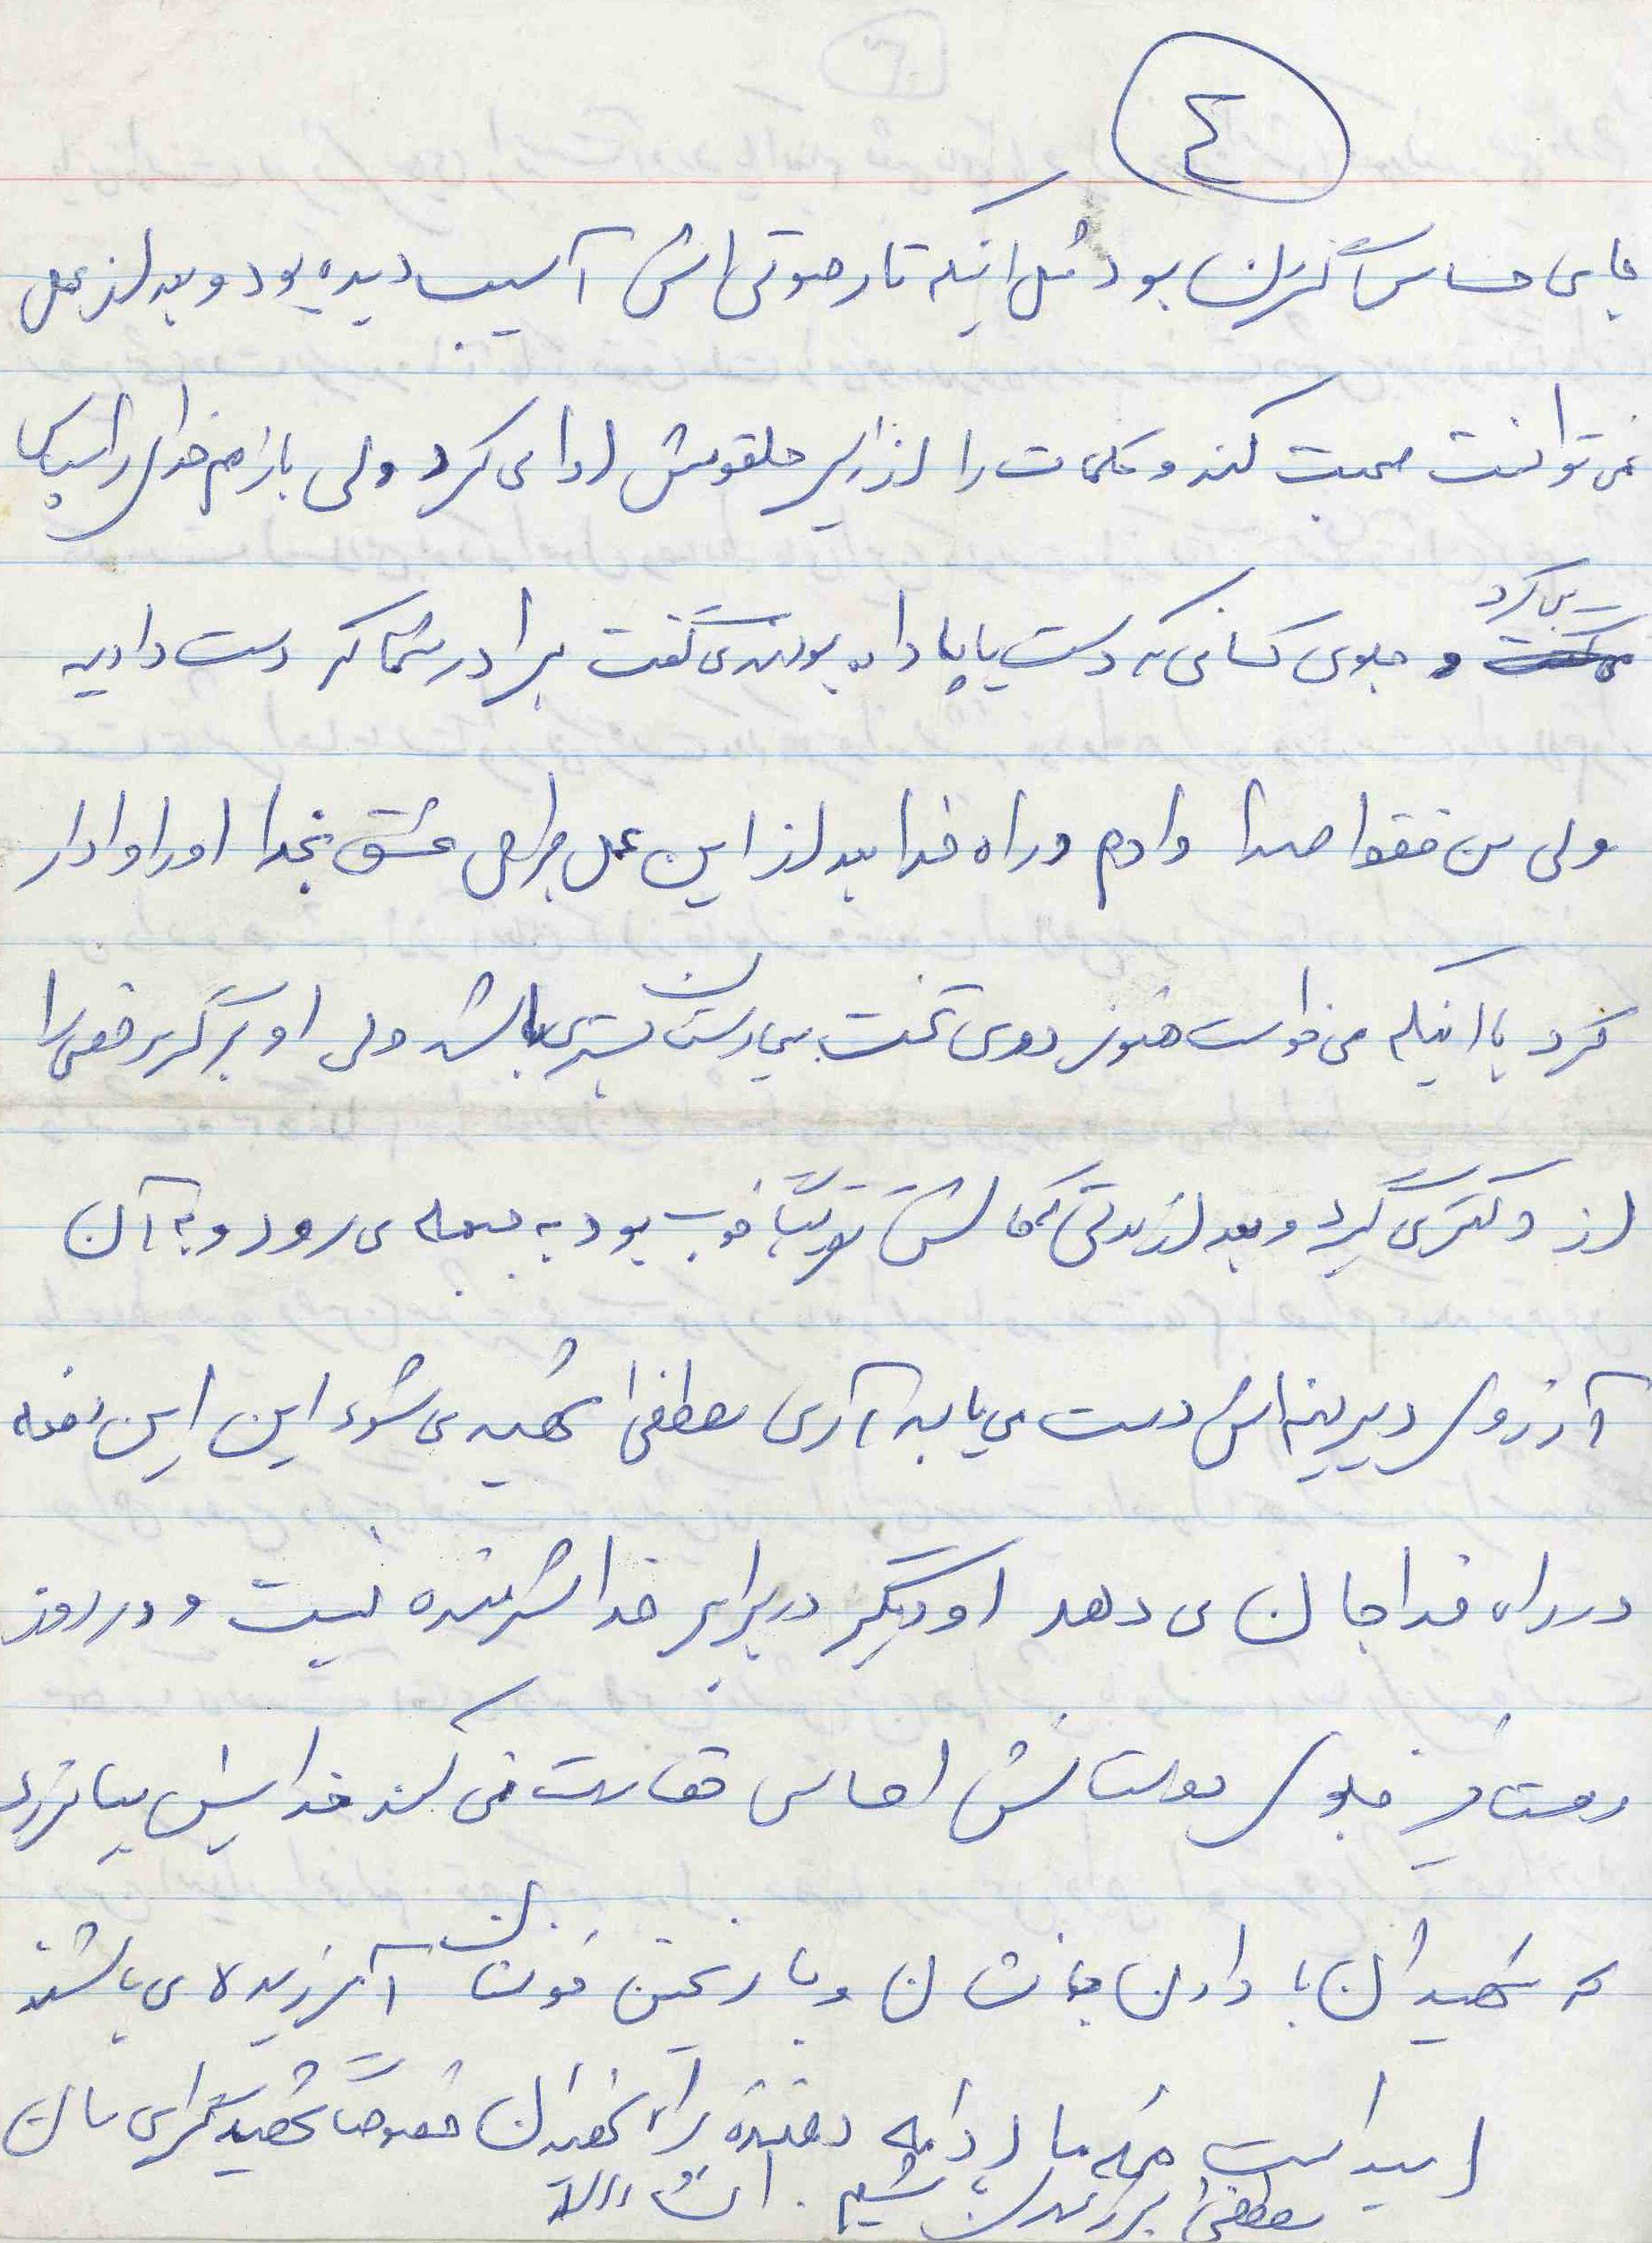 ٤
جای حساس گردن بود مثل اینکه تار صوتی اش آسیب دیده بود و بعد از عمل
نمی توانست صحبت کند و کلمات را از زیر حلقومش ادا می کرد ولی باز هم خدای را سپاس
می کرد
و جلوی کسانی که دست یا پا داده بودند می گفت برادر شما که دست دادید
ولی من فقط صدا دادم در راه خدا بعد از این عمل جراحی عشق بخدا او را وادار
کرد با اینکه می خواست هنوز روی تخت بیمارستان بستری باشد ولی او برگه مرخصی را
از دکتر می گیرد و بعد از مدتی که حالش تقریباً خوب بود به جبهه می رود و به آن
آرزوی دیرینه اش دست می یابد آری مصطفی شهید می شود این این دفعه
در راه خدا جان می دهد او دیگر در برابر خدا شرمنده نیست و در روز
رستاخیز جلوی دوستانش احساس حقارت نمی کند خدایش بیامرزد
که شهیدان با دادن جانشان و با ریختن خونشان آمرزیده می باشند
امید است همه ما ادامه دهنده راه شهیدان خصوصاً شهید گرامی مان
مصطفی باشیم . انشاءالله